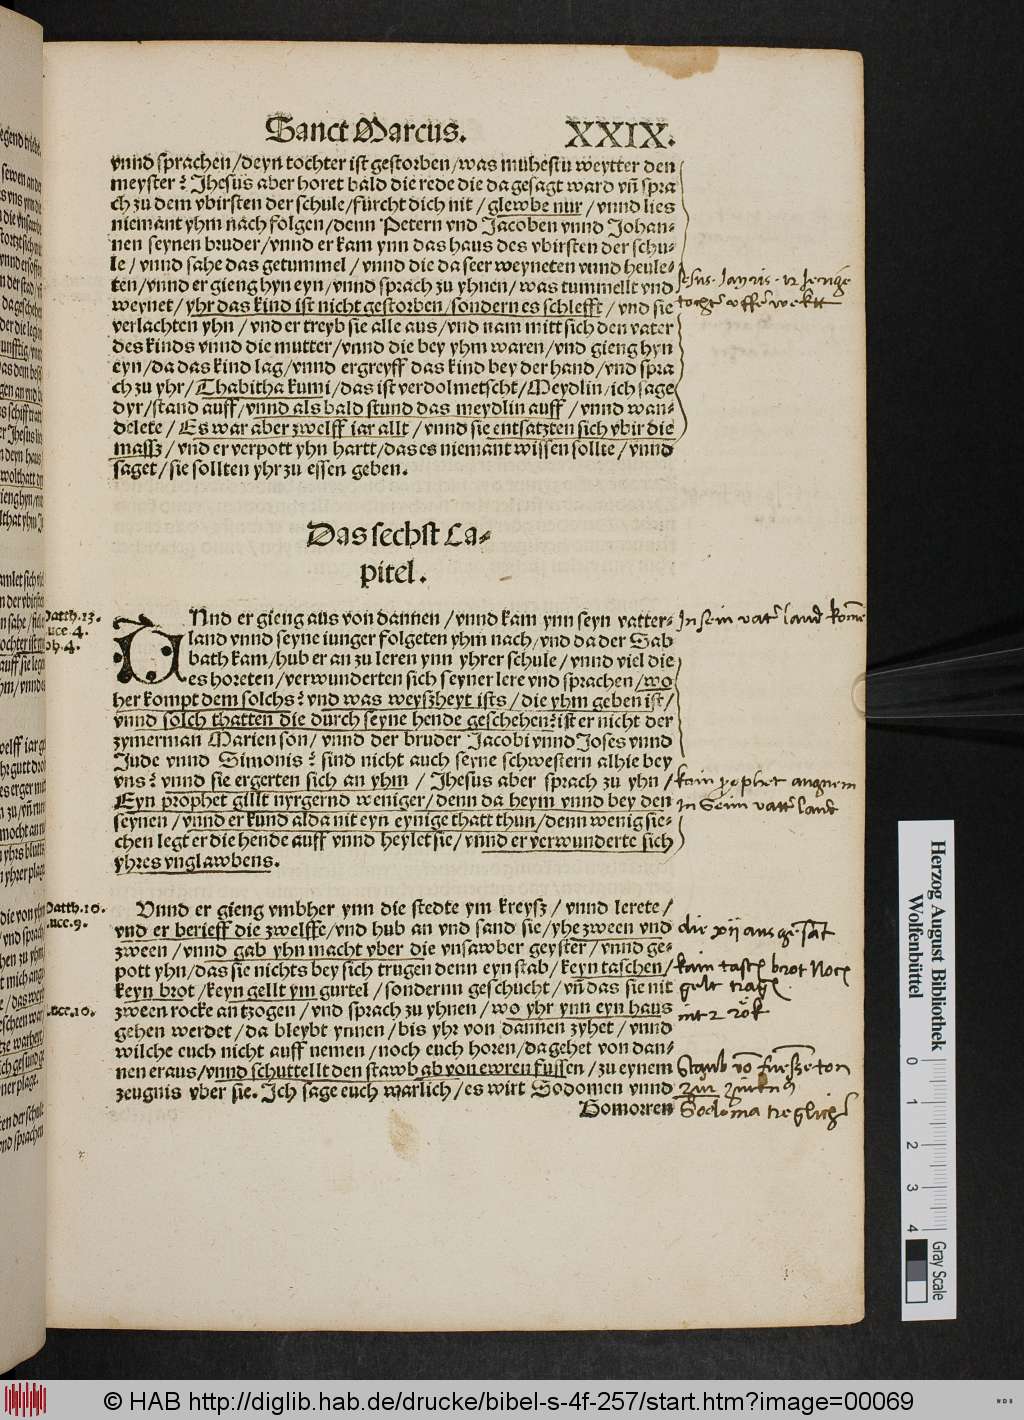 Sanct Marcus. XXIX.
vnnd sprachen/deyn tochter ist gestorben/was muhestu weytter den
meyster? Jhesus aber horet bald die rede die da gesagt ward vn̄ spra
ch zu dem vbirsten der schule/fürcht dich nit/glewbe nur/vnnd lies
niemant yhm nach folgen/denn Petern vnd Jacoben vnnd Johan-
nen seynen bruder/vnnd er kam ynn das haus des vbirsten der schu-
le/vnnd sahe das getummel/vnnd die da seer weyneten vnnd heule-
ten/vnnd er gieng hyn eyn/vnnd sprach zu yhnen/was tummellt vnd
weynet/yhr das kind ist nicht gestorben/sondern es schlefft/vnd sie
verlachten yhn/vnd er treyb sie alle aus/vnd nam mitt sich den vater
des kinds vnnd die mutter/vnnd die bey yhm waren/vnd gieng hyn
eyn/da das kind lag/vnnd ergreyff das kind bey der hand/vnd spra
ch zu yhr/Thabitha kumi/das ist verdolmetscht/Meydlin/ich sage
dyr/stand auff/vnnd als bald stund das meydlin auff/vnnd wan-
delete/Es war aber zwelff iar allt/vnnd sie entsatzten sich vbir die
massz/vnd er verpott yhn hartt/das es niemant wissen sollte/vnnd
saget/sie sollten yhr zu essen geben.
tocht̄ vff̄ wektt
Das sechst Ca-
pitel.
Matth.13.
Luce.4.
Joh.4.
VNnd er gieng aus von dannen/vnnd kam ynn seyn vatter-
land vnnd seyne iunger folgeten yhm nach/vnd da der Sab
bath kam/hub er an zu leren ynn yhrer schule/vnnd viel die
es horeten/verwunderten sich seyner lere vnd sprachen/wo
her kompt dem solchs? vnd was weyszheyt ists/die yhm geben ist/
vnnd solch thatten die durch seyne hende geschehen? ist er nicht der
zymerman Marien son/vnnd der bruder Jacobi vnnd Joses vnnd
Jude vnnd Simonis? sind nicht auch seyne schwestern alhie bey
vns? vnnd sie ergerten sich an yhm/Jhesus aber sprach zu yhn/
Eyn prophet gillt nyrgernd weniger/denn da heym vnnd bey den
seynen/vnnd er kund alda nit eyn eynige thatt thun/denn wenig sie-
chen legt er die hende auff vnnd heylet sie/vnnd er verwunderte sich
yhres vnglawbens.
In sein vat̄ land kom̄e
kain prophet angnem
in Seim vatt̄ land
Matth.10.
Luce.9.
Luce.10.
Vnnd er gieng vmbher ynn die stedte ym kreysz/vnnd lerete/
vnd er berieff die zwelffe/vnd hub an vnd sand sie/yhe zween vnd
zween/vnnd gab yhn macht vber die vnsawber geyster/vnnd ge-
pott yhn/das sie nichts bey sich trugen denn eyn stab/keyn taschen/
keyn brot/keyn gellt ym gurtel/sondernn geschucht/vn̄ das sie nit
zween rocke an tzogen/vnd sprach zu yhnen/wo yhr ynn eyn haus
gehen werdet/da bleybt ynnen/bis yhr von dannen zyhet/vnnd
wilche euch nicht auff nemen/noch euch horen/da gehet von dan-
nen eraus/vnnd schuttellt den stawb ab von ewren fussen/zu eynem
zeugnis vber sie. Ich sage euch warlich/es wirt Sodomen vnnd
Gomorren
die xij ausgesāt
kain tasch brot noch
gelt tragē
nit 2 rök
Sodoma treglich̄
Herzog August Bibliothek
Wolfenbüttel
0 1 2 3 4
Gray Scale
© HAB http://diglib.hab.de/drucke/bibel-s-4f-257/start.htm?image=00069